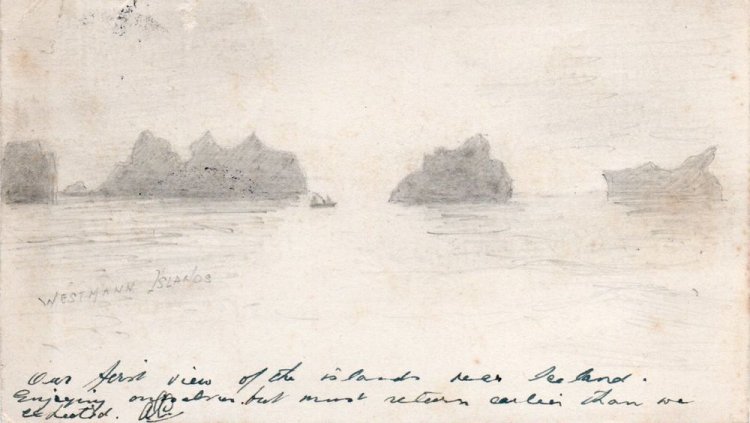 WESTMANN ISLANDS
Our first view of the islands near Iceland.
Enjoying ourselves but must return earlier than we
expected. AC.